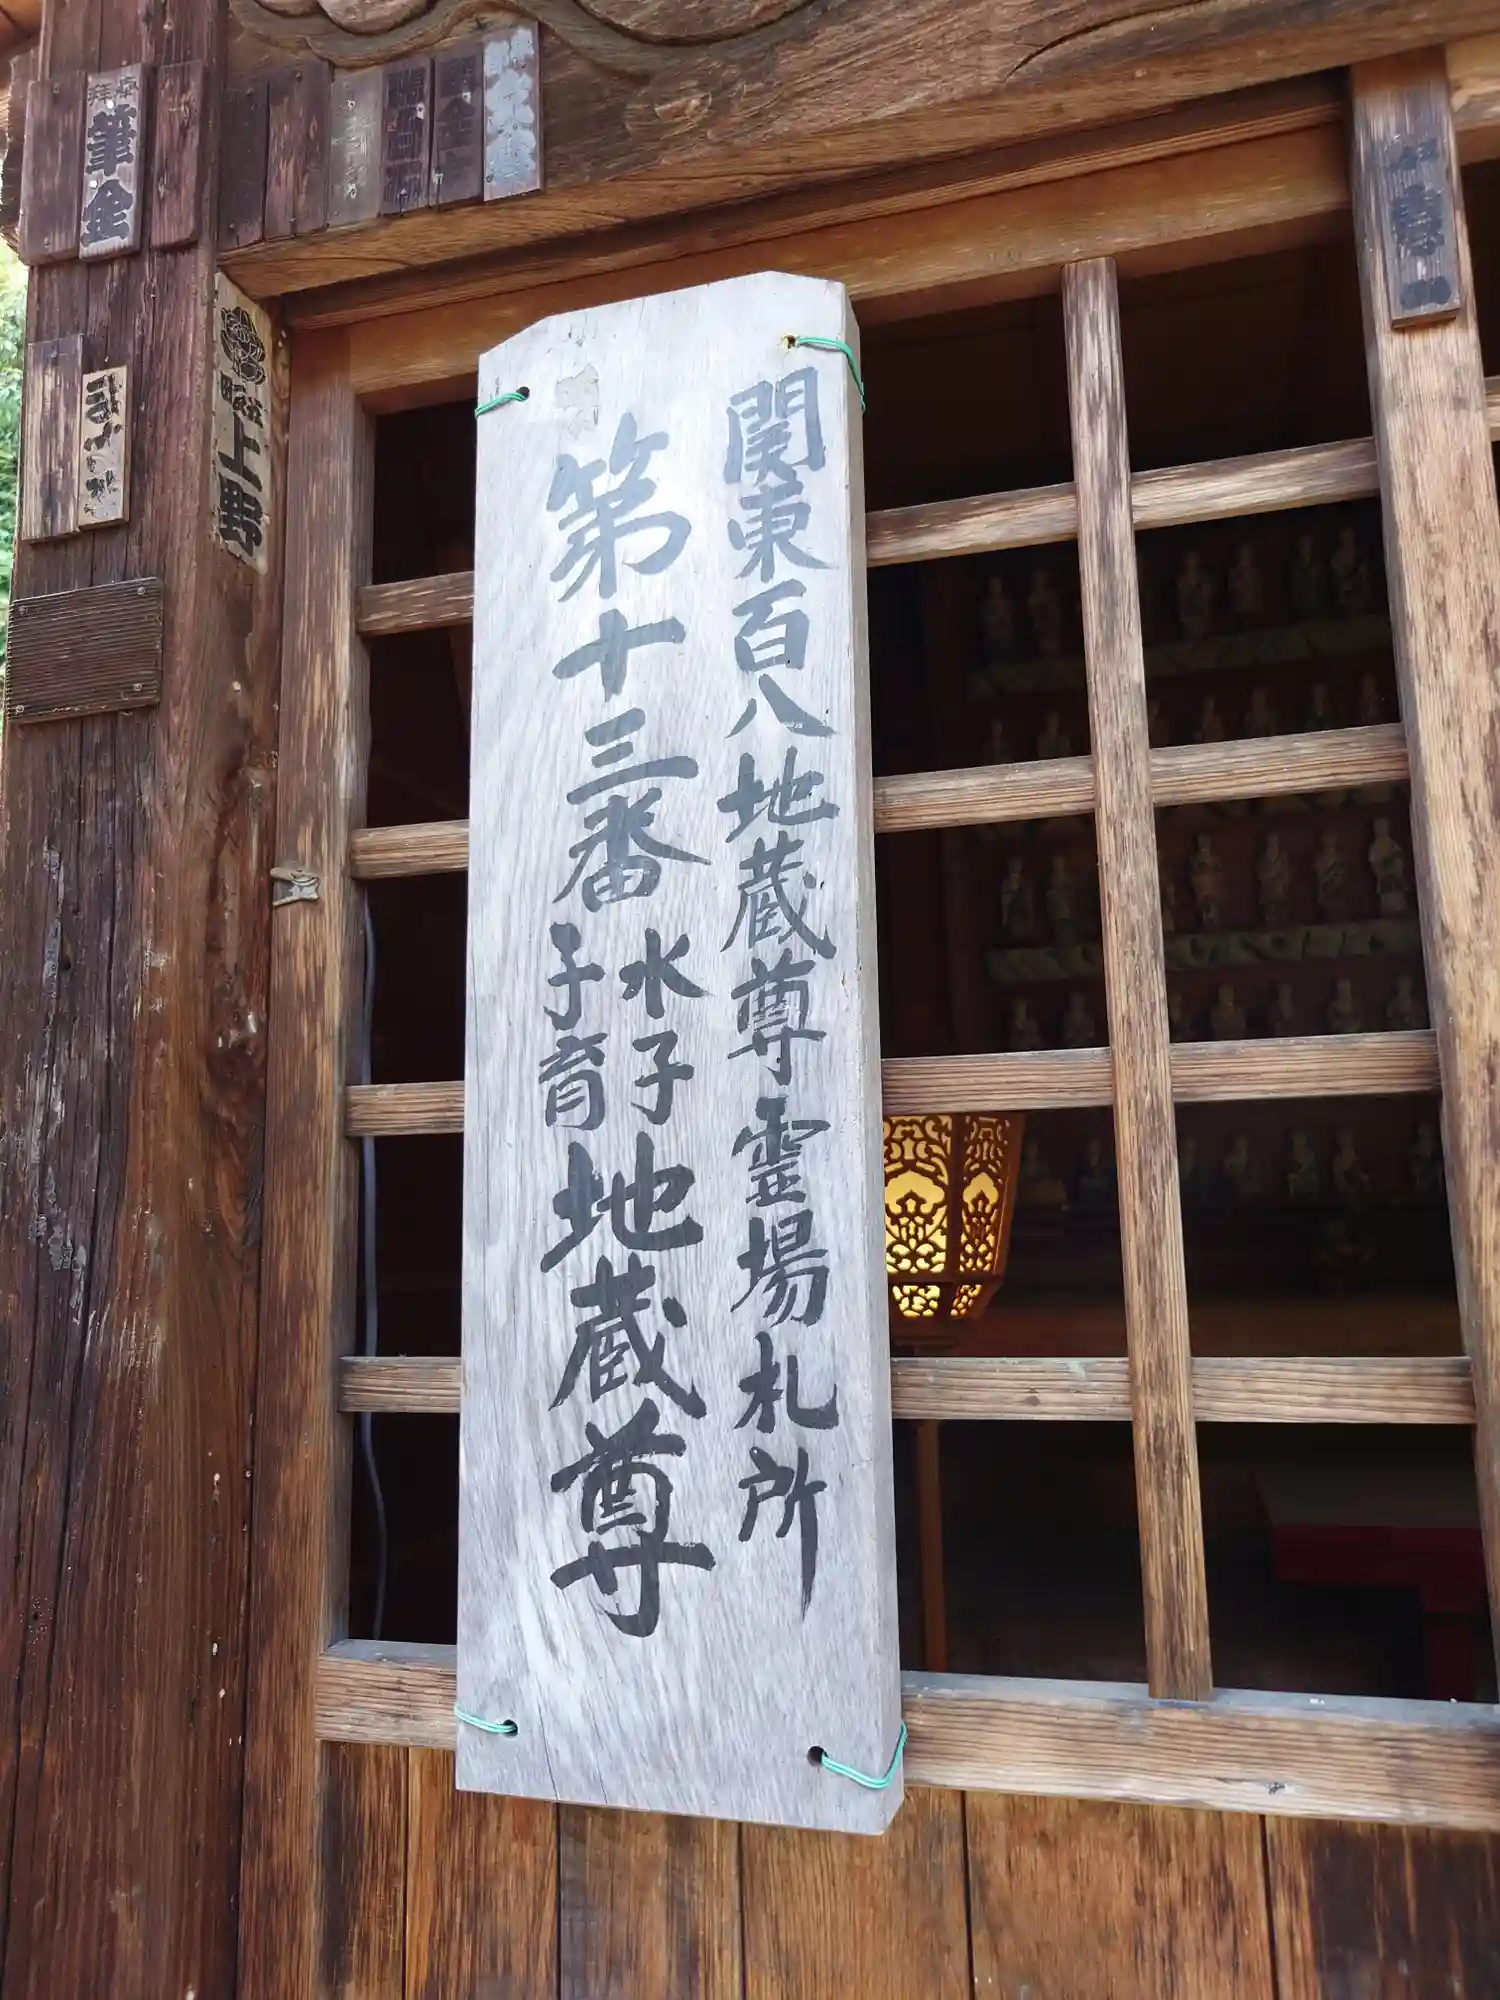 関東百八地蔵尊霊場札所
第十三番
水子
子育
地蔵尊
筆金
上野